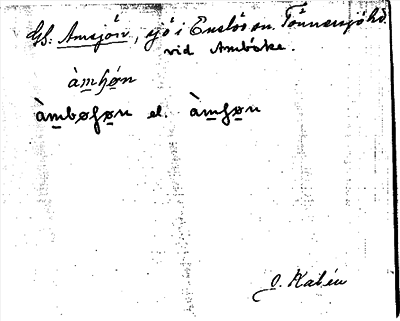 GS: Amsjön, sjö i Enslöv sn. Tönnersjö hd.
vid Amböke.
àmɧøn
àmbøɧøn el. àmɧøn
O. Kalén